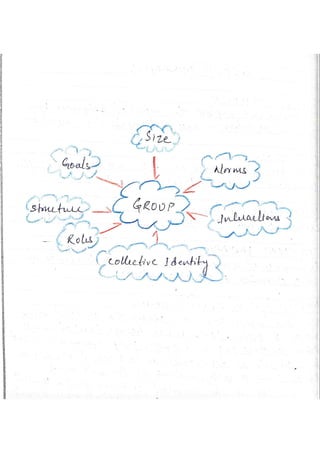 Size
Goals
Norms
GROUP
Structure
Interactions
Roles
Collective Identity